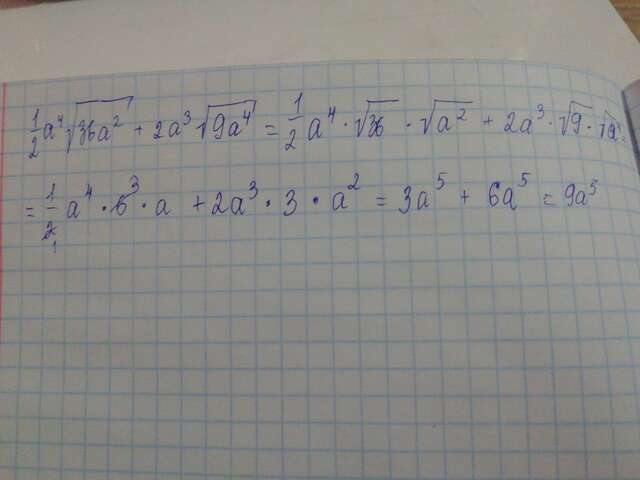 1/2 a⁴√36a² + 2a³√9a⁴ = 1/2 a⁴ · √36 · √a² + 2a³ · √9 · √a⁴ =
= 1/2 a⁴ · 6³ · a + 2a³ · 3 · a² = 3a⁵ + 6a⁵ = 9a⁵